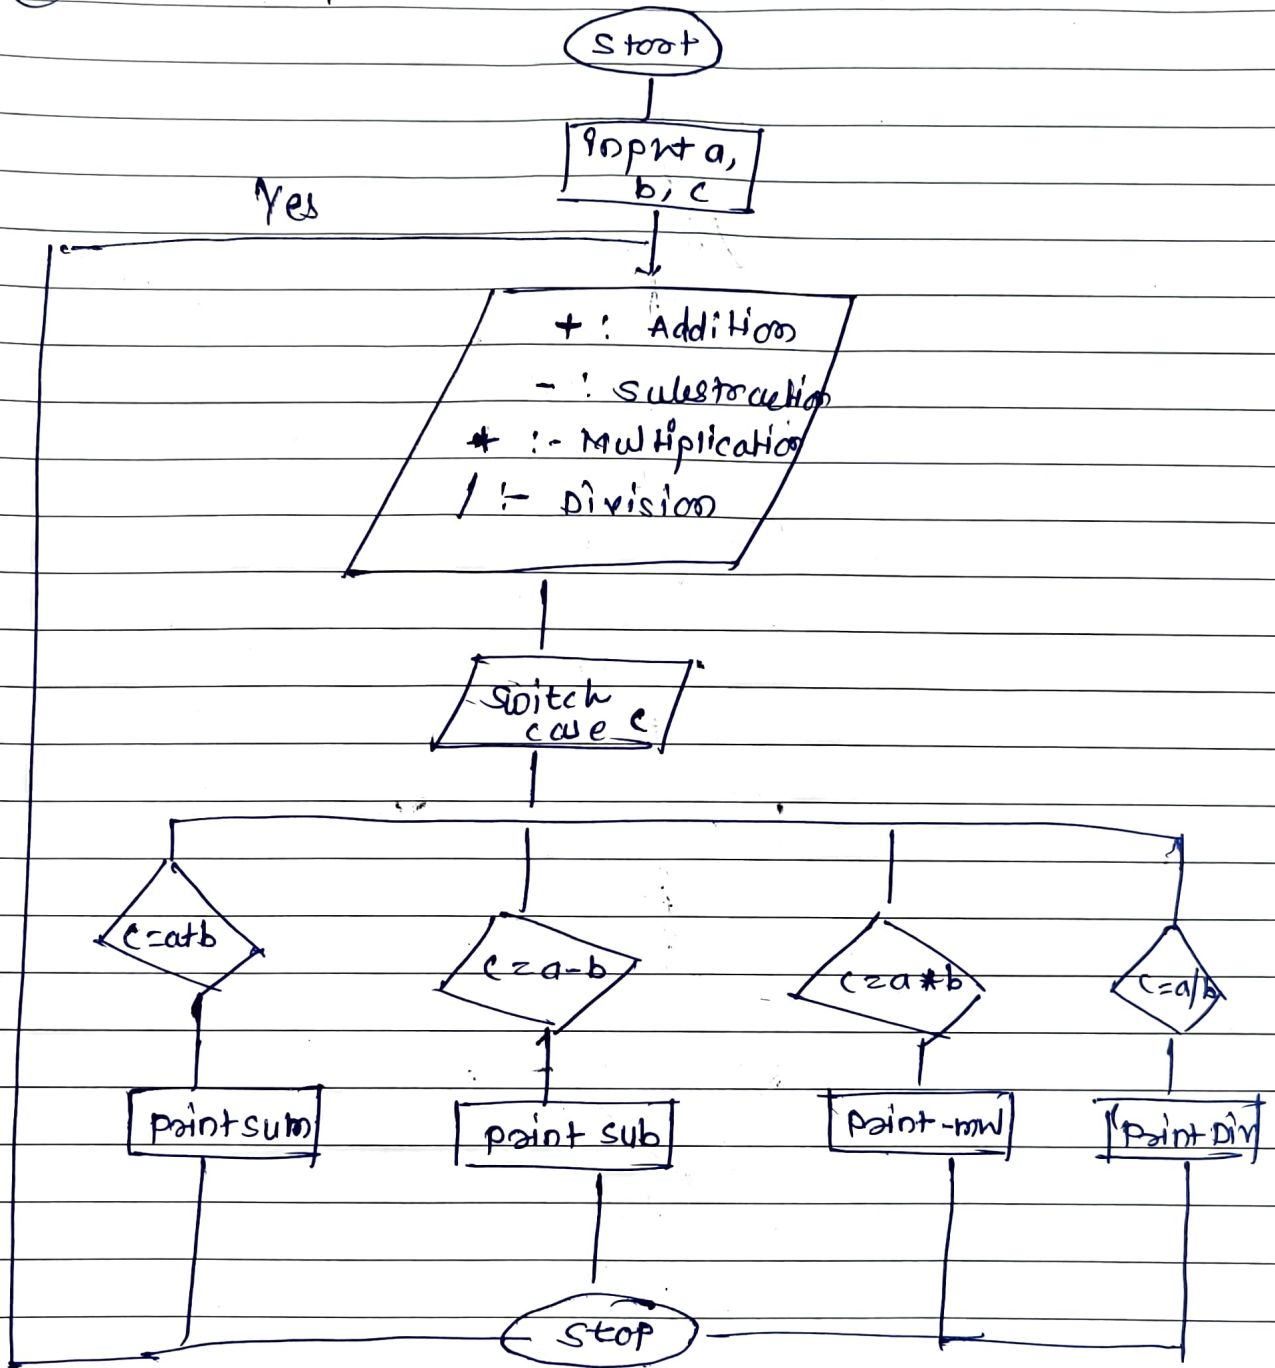 Start
Input a,
b, c
Yes
+ : Addition
- : Substraction
* :- Multiplication
/ :- Division
Switch
case c
c=a+b
c=a-b
c=a*b
c=a/b
print sum
print sub
print-mul
print Div
Stop